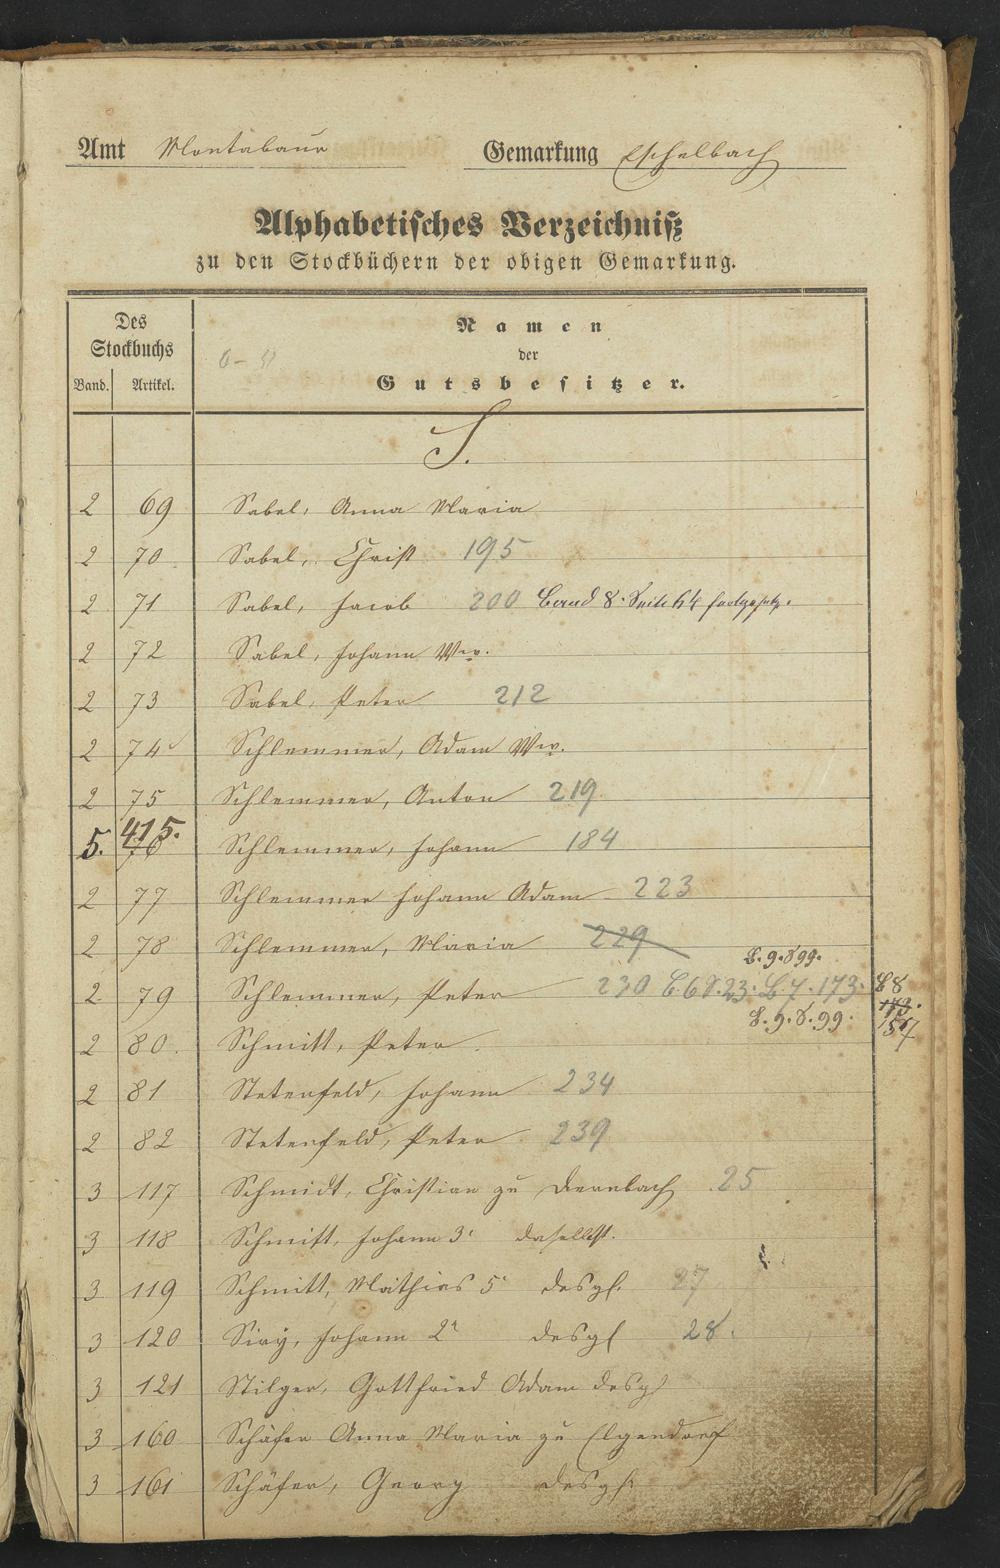 Amt Montabaur Gemarkung Eschelbach
Alphabetisches Verzeichniß
zu den Stockbüchern der obigen Gemarkung.
Des Stockbuchs
Band. Artikel.
Namen
der
Gutsbesitzer.
S.
2 69 Sabel, Anna Maria
2 70 Sabel, Christ 195
2 71 Sabel, Jacob 200 Band 8. Seite 64 fortgesetzt.
2 72 Sabel, Johann Ww.
2 73 Sabel, Peter 212
2 74 Schlemmer, Adam Ww.
2 75 Schlemmer, Anton 219
5. 415. 76 Schlemmer, Johann 184
2 77 Schlemmer Johann Adam 223
2 78 Schlemmer, Maria 229
B. 9. S 99.
2 79 Schlemmer, Peter 230 B. 6 S. 23. B 7. 173. B 8
B. 9. S. 99. 157
2 80. Schmitt, Peter
2 81 Stetenfeld, Johann 234
2 82 Stetenfeld, Peter 239
3 117 Schmidt, Christian zu Dernbach 25
3 118 Schmitt, Johann 3r daselbst.
3 119 Schmitt, Mathias 5r desgl. 27
3 120 Siry, Johann 2r desgl 28.
3 121 Stilger, Gottfried Adam desgl
3 160 Schäfer Anna Maria zu Elgendorf
3 161 Schäfer, Georg desgl.